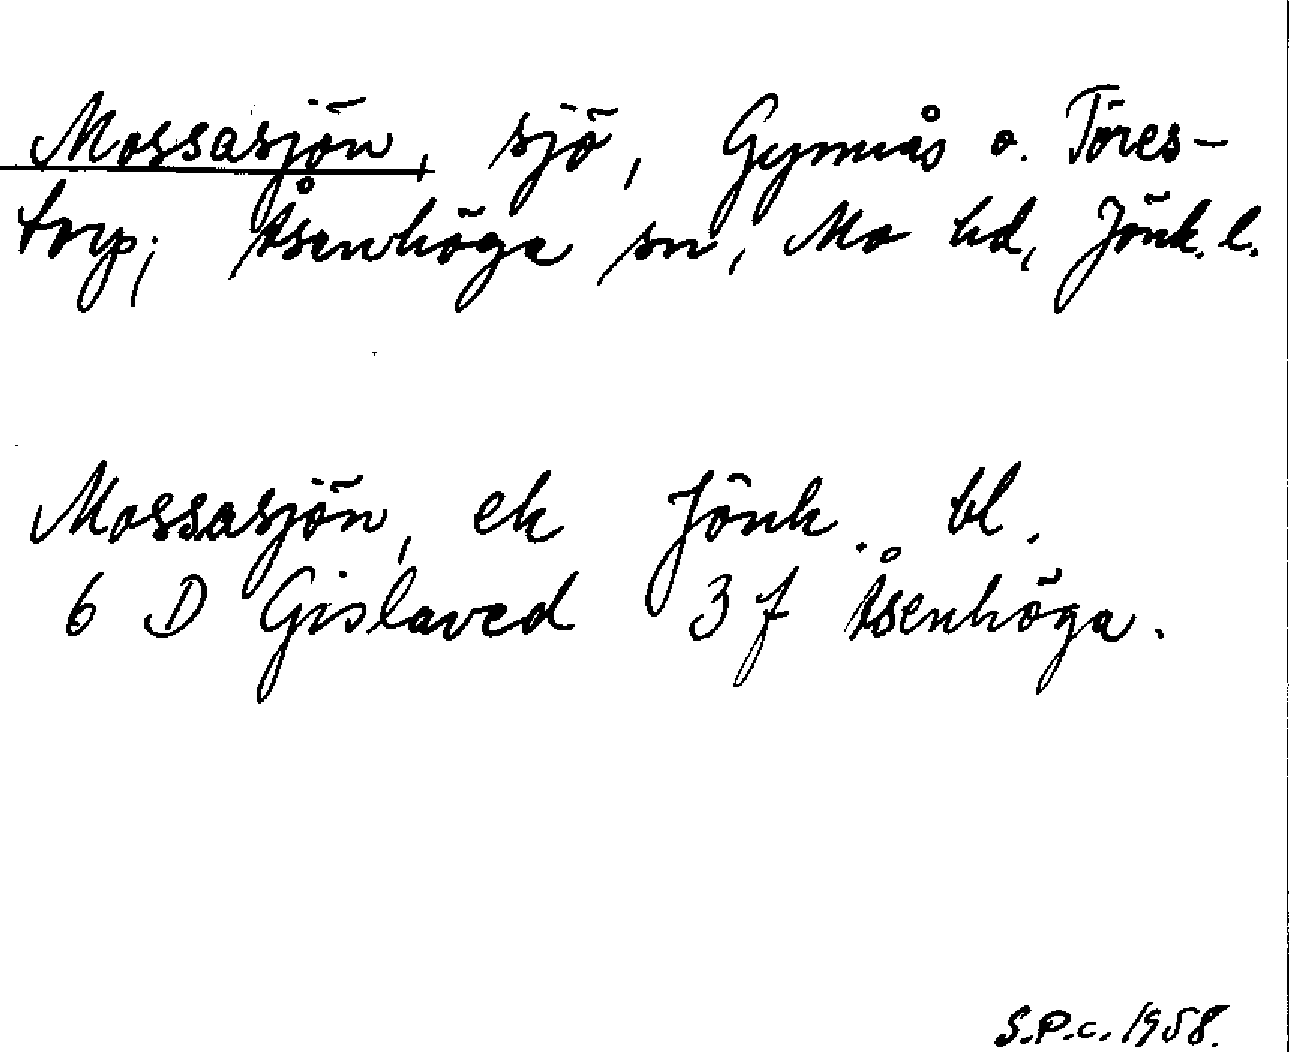 Mossasjön, sjö, Gynnås o. Töres-
torp, Åsenhöga sn, Mo hd, Jönk. l.
Mossasjön, ek Jönk. bl.
6 D Gislaved 3 f Åsenhöga.
S.P.C. 1958.